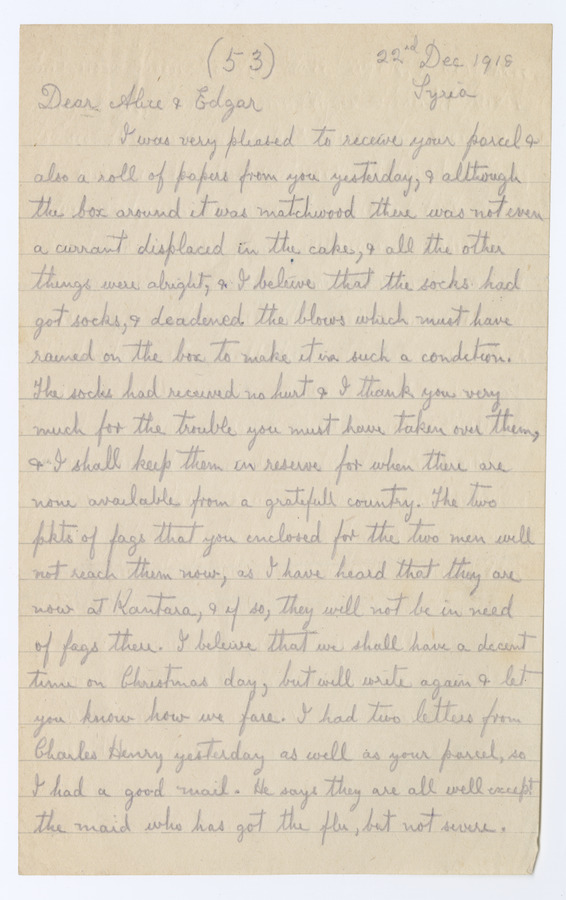 (53) 22nd Dec 1918
Syria
Dear Alice & Edgar
I was very pleased to receive your parcel &
also a roll of papers from you yesterday, & although
the box around it was matchwood there was not even
a currant displaced in the cake, & all the other
things were alright, & I beleive that the socks had
got socks, & deadened the blows which must have
rained on the box to make it in such a condition.
The socks had received no hurt & I thank you very
much for the trouble you must have taken over them,
& I shall keep them in reserve for when there are
none available from a gratefull country. The two
pkts of fags that you enclosed for the two men will
not reach them now, as I have heard that they are
now at Kantara, & if so, they will not be in need
of fags there. I beleive that we shall have a decent
time on Christmas day, but will write again & let
you know how we fare. I had two letters from
Charles Henry yesterday as well as your parcel, so
I had a good mail. He says they are all well except
the maid who has got the flu, but not severe.